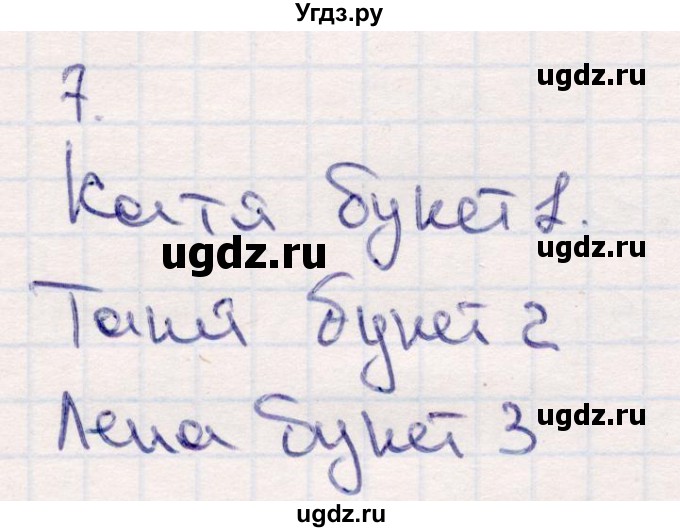 Угдз.ру
ugdz.ru
7.
Катя букет 1.
ugdz.ru
ugdz.ru
Таня букет 2
Лена букет 3
ugdz.ru
ugdz.ru